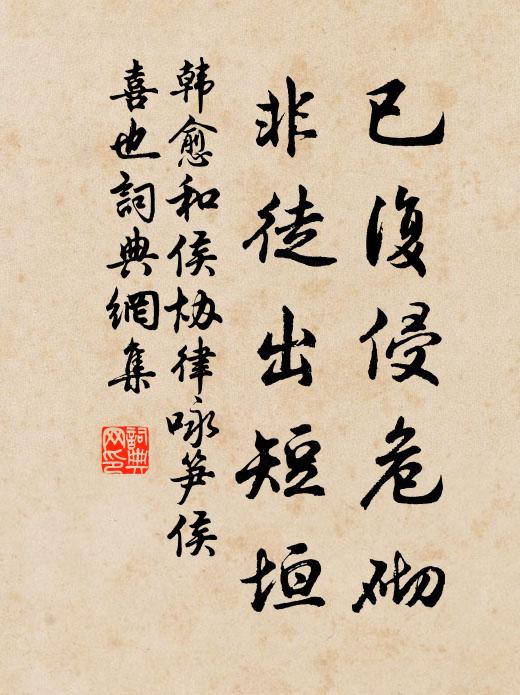 已復侵危砌
非徒出短垣
韩愈和侯协律咏笋侯
喜也詞典網集
詞典
网印